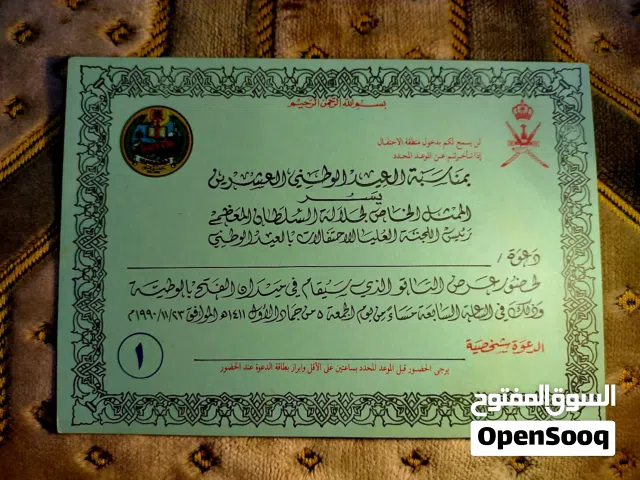 بسم الله الرحمن الرحيم
لن يسمح لكم بدخول منطقة الاحتفال
إذا تأخرتم عن الموعد المحدد
بمناسبة العيد الوطني العشرين
يسر
الممثل الخاص لجلالة السلطان المعظم
رئيس اللجنة العليا للاحتفالات بالعيد الوطني
دعوة /
لحضور عرض التاتو الذي سيقام في ميدان الفتح بالوطية
وذلك في الساعة السابعة مساء من يوم الجمعة ٥ من جماد الأول ١٤١١هـ الموافق ١٩٩٠/١١/٢٣م
الدعوة شخصية
١
يرجى الحضور قبل الموعد المحدد بساعتين على الأقل وابراز بطاقة الدعوة عند الحضور
السوق المفتوح
OpenSooq